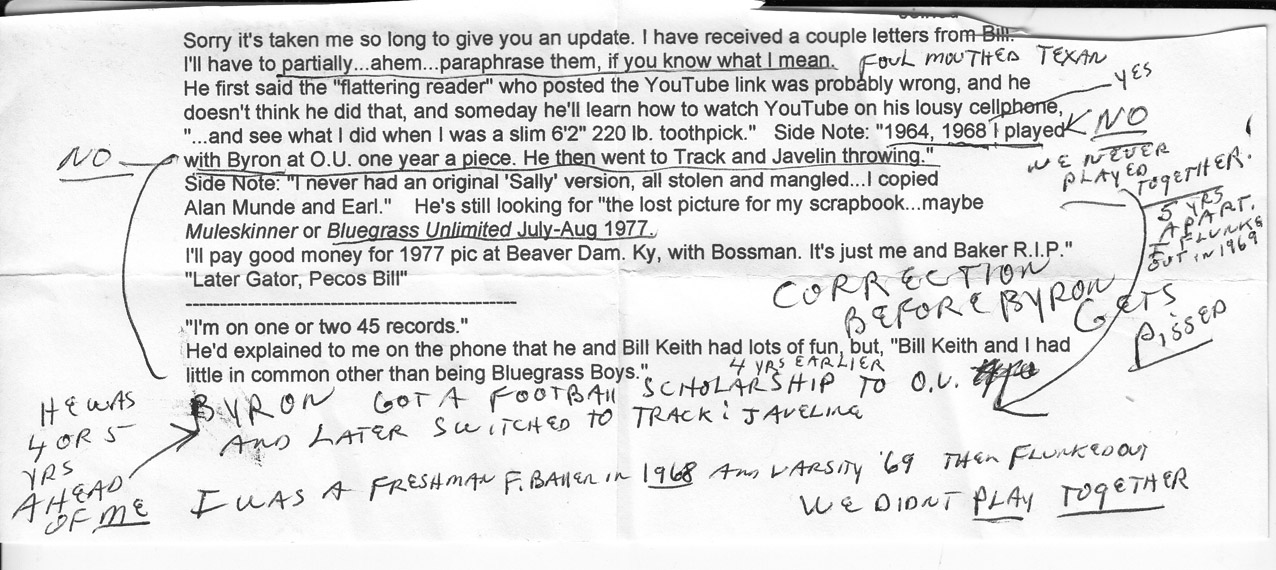 Sorry it's taken me so long to give you an update. I have received a couple letters from Bill.
I'll have to partially...ahem...paraphrase them, if you know what I mean. FOUL MOUTHED TEXAN
He first said the "flattering reader" who posted the YouTube link was probably wrong, and he YES
doesn't think he did that, and someday he'll learn how to watch YouTube on his lousy cellphone,
"...and see what I did when I was a slim 6'2" 220 lb. toothpick." Side Note: "1964, 1968 I played NO
NO with Byron at O.U. one year a piece. He then went to Track and Javelin throwing."
WE NEVER
PLAYED
TOGETHER.
5 YRS
APART.
I FLUNKED
OUT IN 1969
Side Note: "I never had an original 'Sally' version, all stolen and mangled...I copied
Alan Munde and Earl." He's still looking for "the lost picture for my scrapbook...maybe
Muleskinner or Bluegrass Unlimited July-Aug 1977.
I'll pay good money for 1977 pic at Beaver Dam. Ky, with Bossman. It's just me and Baker R.I.P."
"Later Gator, Pecos Bill"
CORRECTION
BEFORE BYRON
GETS
PISSED
----------------------------------------
"I'm on one or two 45 records."
He'd explained to me on the phone that he and Bill Keith had lots of fun, but, "Bill Keith and I had
little in common other than being Bluegrass Boys."
4 YRS EARLIER
BYRON GOT A FOOTBALL SCHOLARSHIP TO O.U.
AND LATER SWITCHED TO TRACK & JAVELING
HE WAS
4 OR 5
YRS
AHEAD
OF ME
I WAS A FRESHMAN F.BALLER IN 1968 AND VARSITY '69 THEN FLUNKED OUT
WE DIDNT PLAY TOGETHER